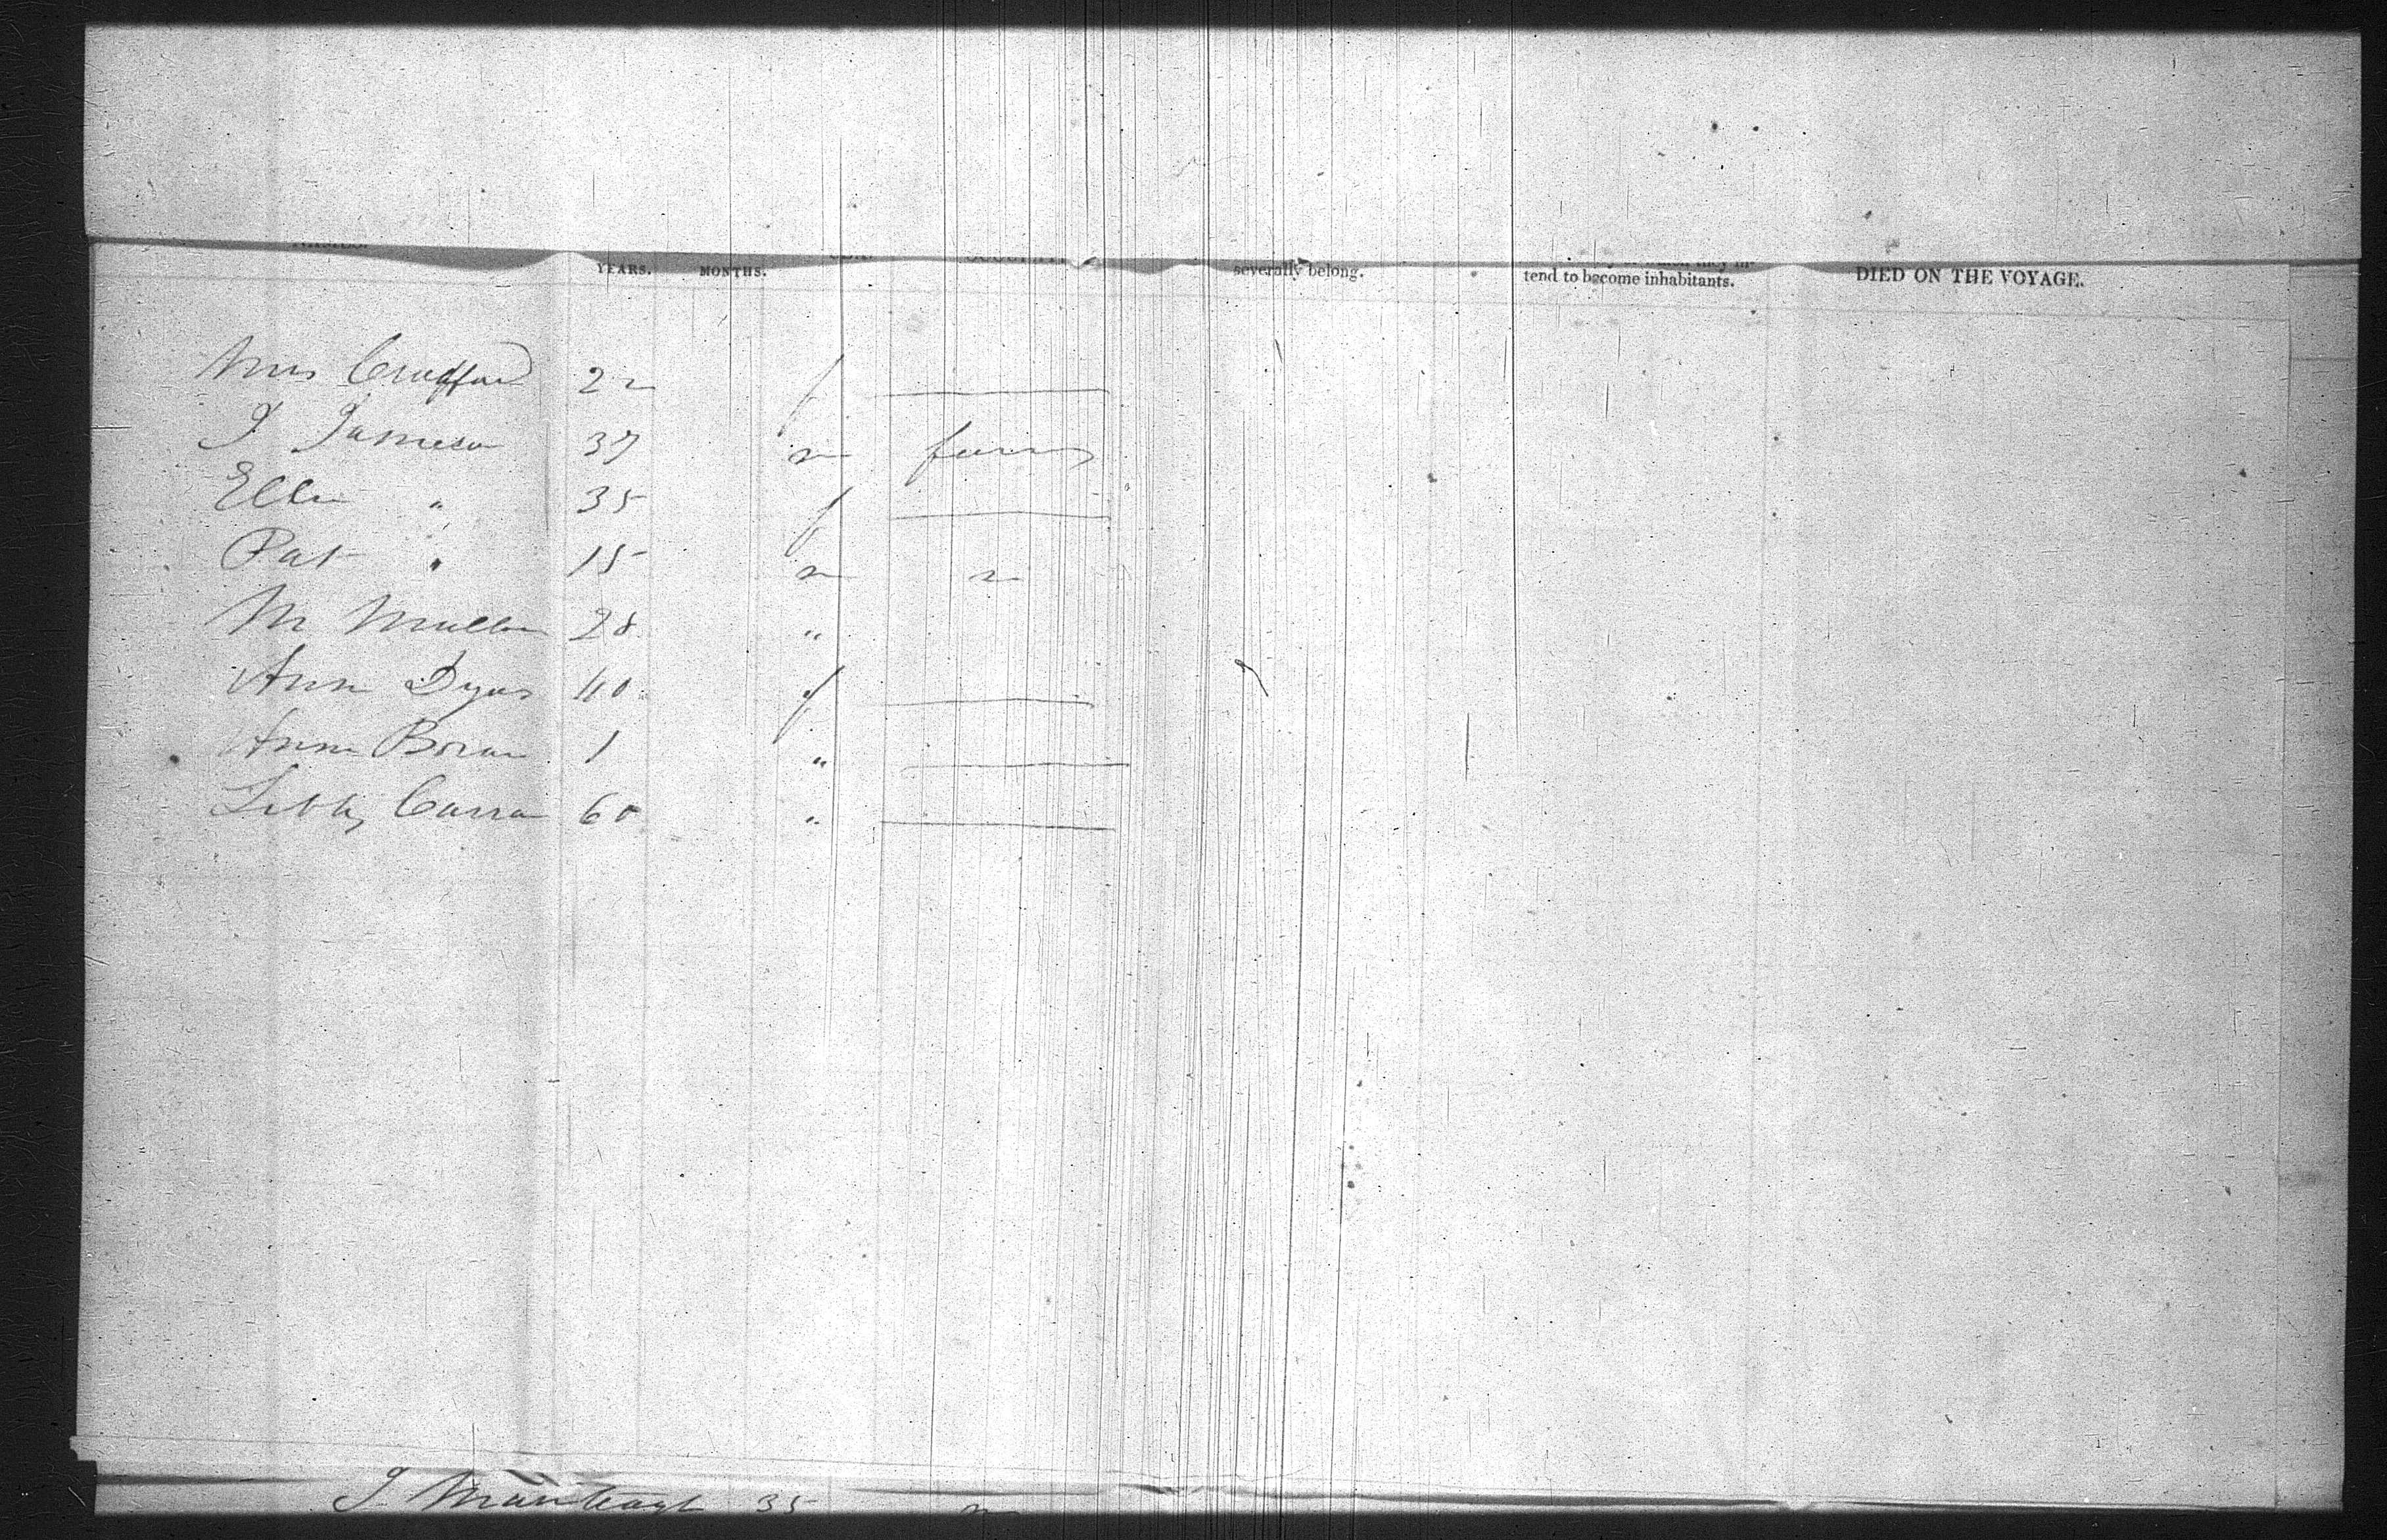 YEARS. MONTHS. severally belong. tend to become inhabitants. DIED ON THE VOYAGE.
Mrs Crawford 22 f
J Jameson 37 m farmer
Ellen " 35 f
Pat " 15 m "
M Mullen 28 "
Ann Dyas 40 f
Ann 1 "
Libby Curran 60 "
J 35 m